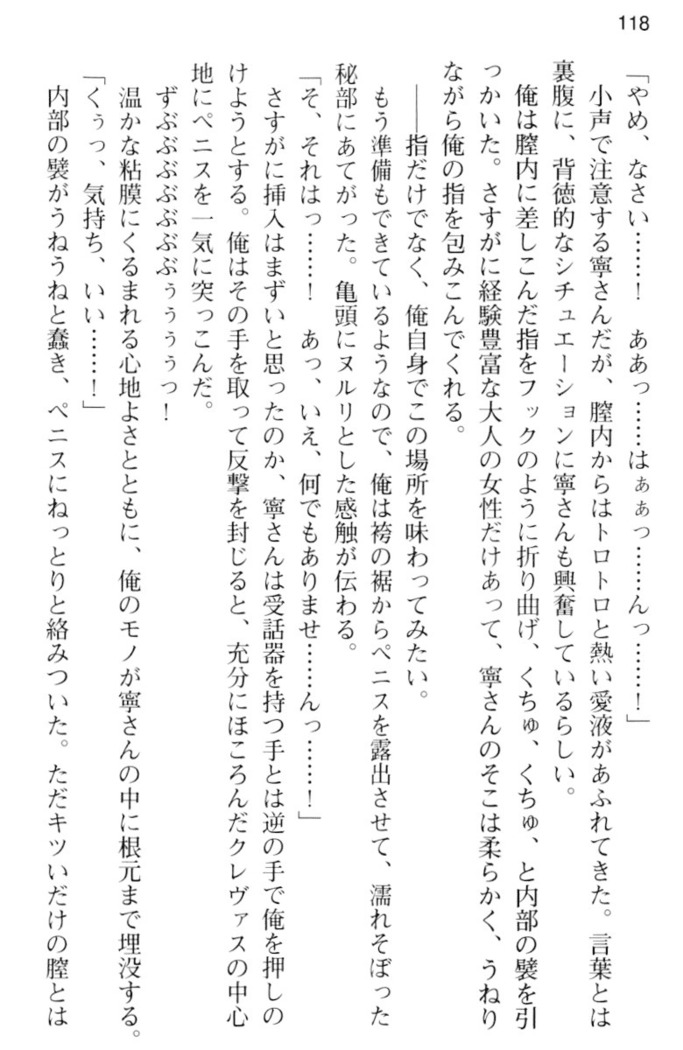 118
「やめ、なさい……！　ああっ……はぁぁっ……んっ……！」
　小声で注意する寧さんだが、膣内からはトロトロと熱い愛液があふれてきた。言葉とは
裏腹に、背徳的なシチュエーションに寧さんも興奮しているらしい。
　俺は膣内に差しこんだ指をフックのように折り曲げ、くちゅ、くちゅ、と内部の襞を引
っかいた。さすがに経験豊富な大人の女性だけあって、寧さんのそこは柔らかく、うねり
ながら俺の指を包みこんでくれる。
　――指だけでなく、俺自身でこの場所を味わってみたい。
　もう準備もできているようなので、俺は袴の裾からペニスを露出させて、濡れそぼった
秘部にあてがった。亀頭にヌルリとした感触が伝わる。
「そ、それはっ……！　あっ、いえ、何でもありませ……んっ……！」
　さすがに挿入はまずいと思ったのか、寧さんは受話器を持つ手とは逆の手で俺を押しの
けようとする。俺はその手を取って反撃を封じると、充分にほころんだクレヴァスの中心
地にペニスを一気に突っこんだ。
　ずぶぶぶぶぶぶぅぅぅぅっ！
　温かな粘膜にくるまれる心地よさとともに、俺のモノが寧さんの中に根元まで埋没する。
「くぅっ、気持ち、いい……！」
　内部の襞がうねうねと蠢き、ペニスにねっとりと絡みついた。ただキツいだけの膣とは